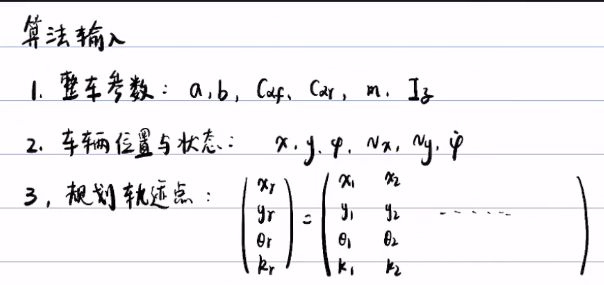 算法输入
1. 整车参数: a, b, Cαf, Cαr, m, Iz
2. 车辆位置与状态: x, y, φ, vx, vy, φ̇
3, 规划轨迹点: (xr yr θr kr) = (x1 x2 y1 y2 ------ θ1 θ2 k1 k2)